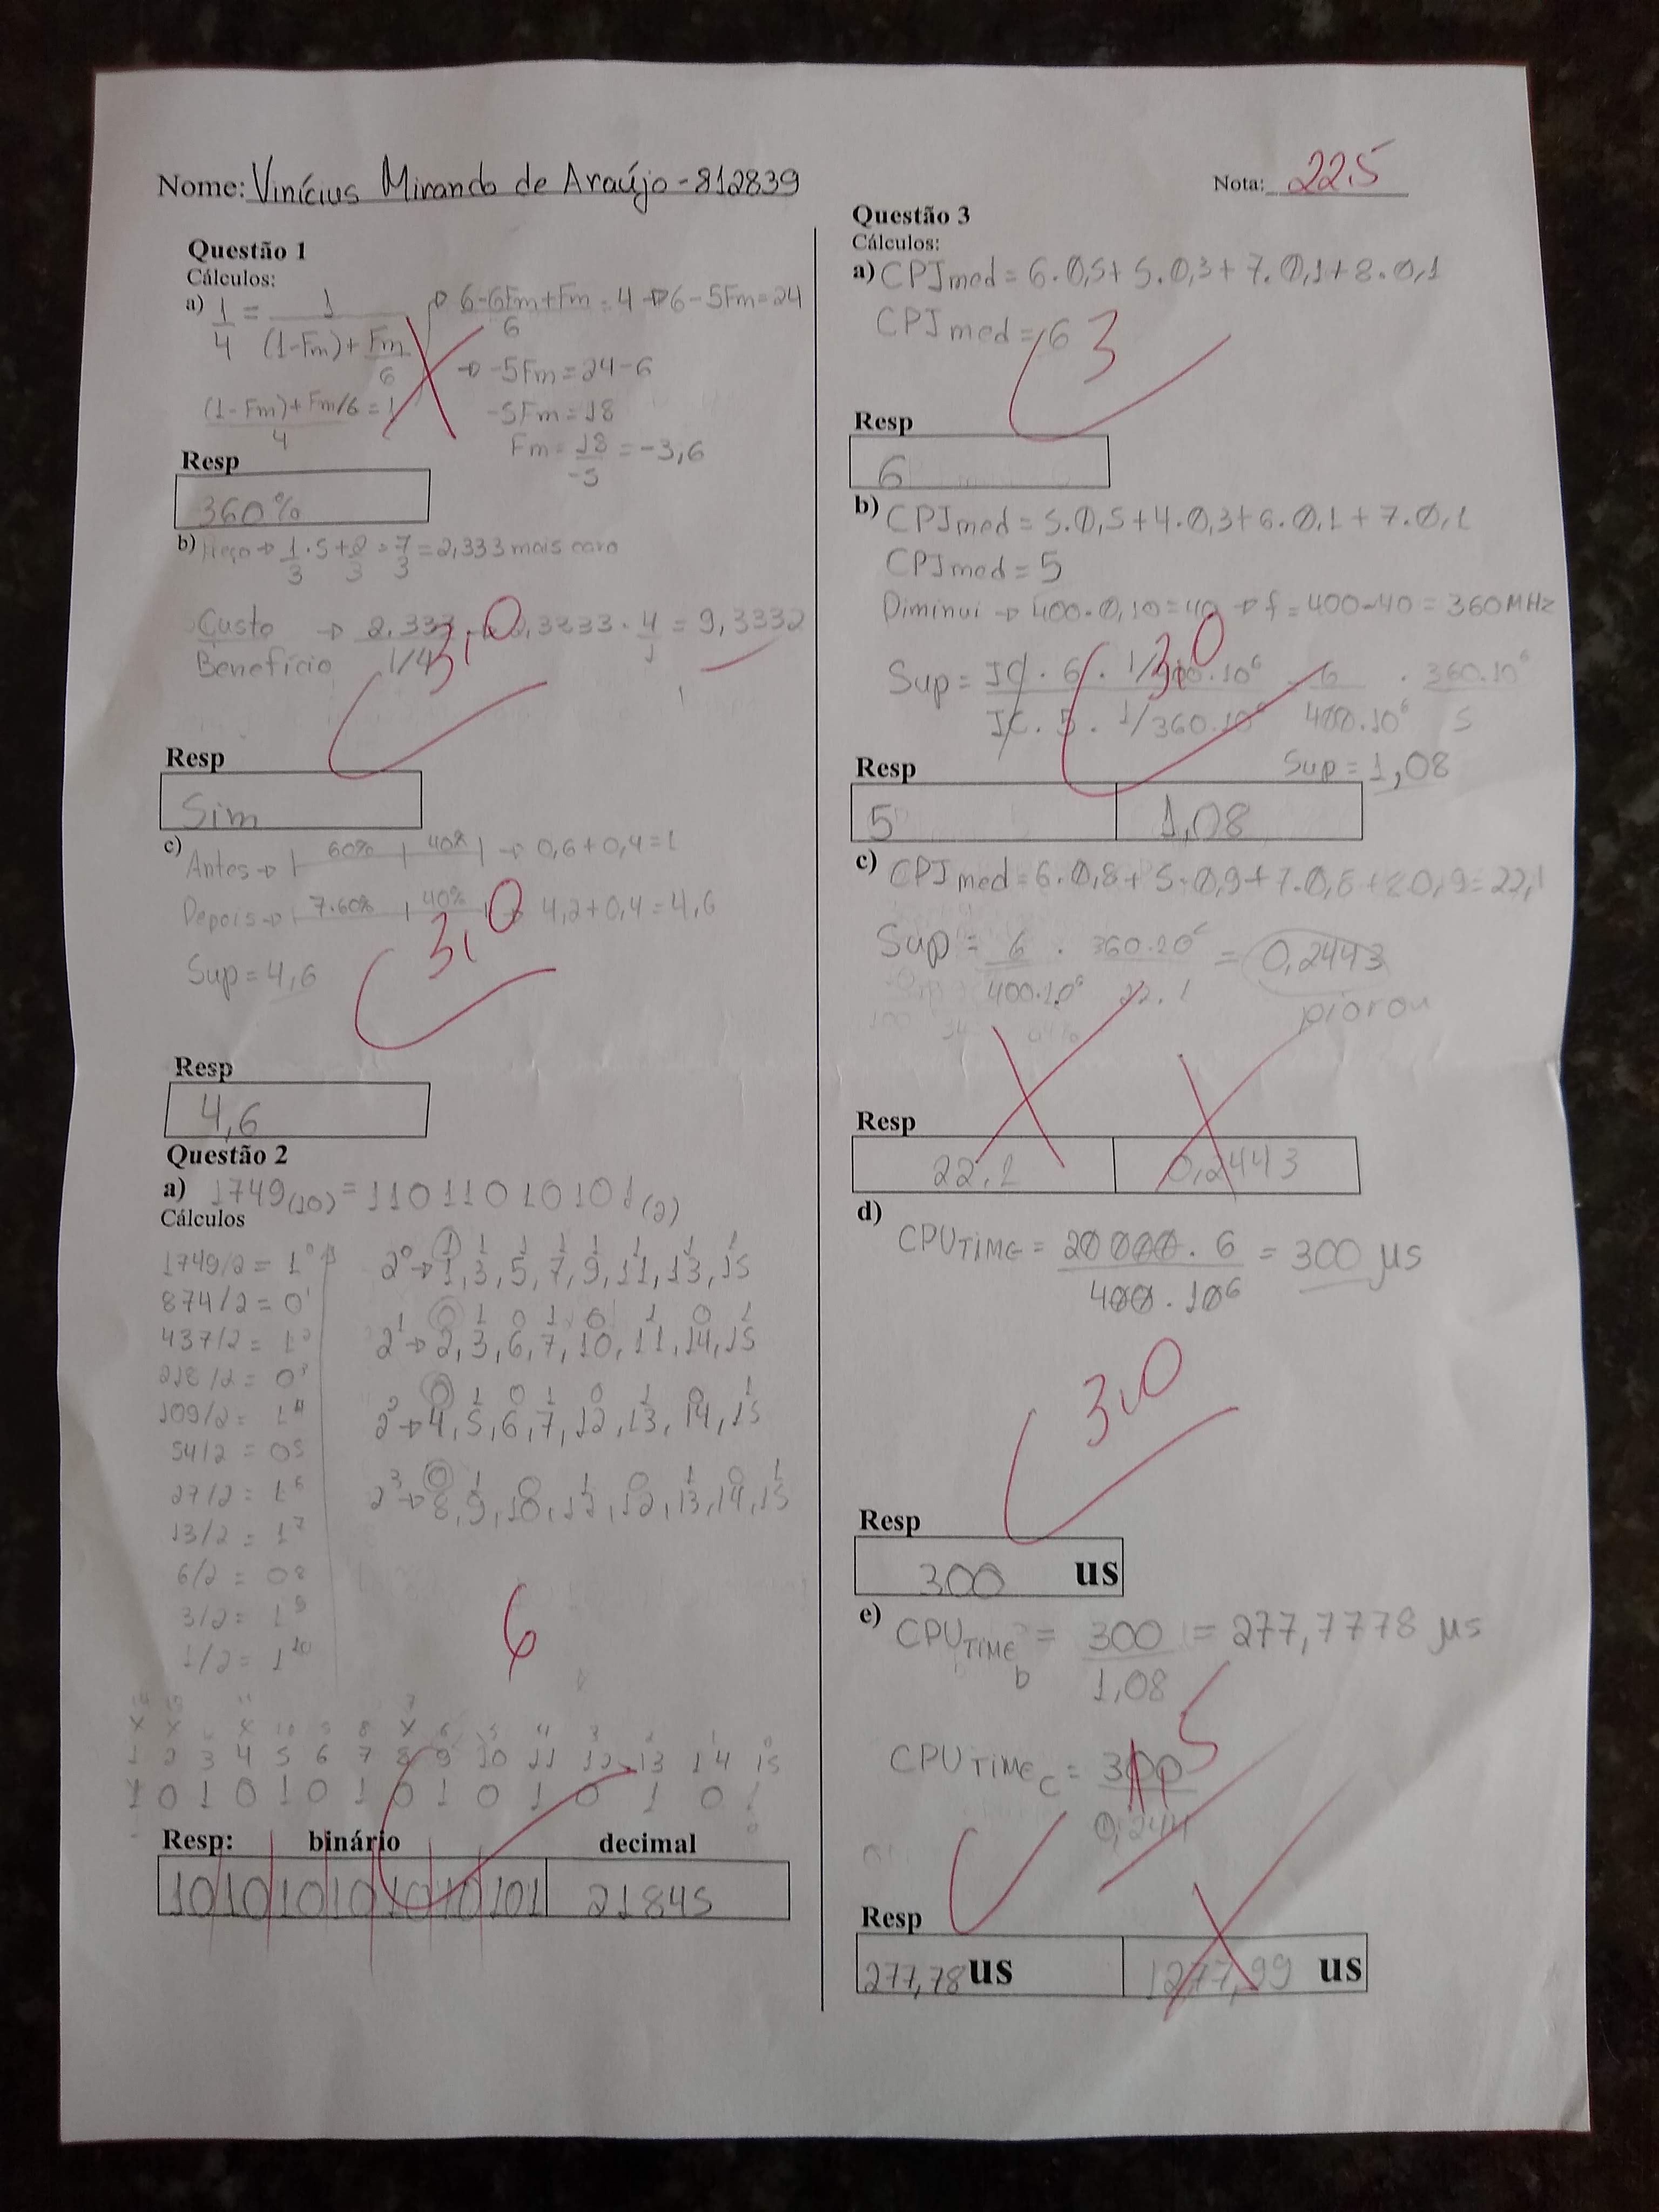 Nome: Vinícius Miranda de Araújo - 812839
Nota: 22,5
Questão 1
Cálculos:
a) 1/4 = 1/((1-Fm)+Fm/6)
(1-Fm)+Fm/6 = 1
4
→ 6-6Fm+Fm/6 = 4 → 6-5Fm=24
→ -5Fm=24-6
-5Fm=18
Fm=18/-5=-3,6
Resp
360%
b) Preço → 1/3 · 5 + 2/3 = 7/3 = 2,333 mais caro
Custo/Benefício → 2,333/1/4 = 2,3333 · 4/1 = 9,3332
3,0
Resp
Sim
c)
Antes → 60% 40% → 0,6+0,4=1
Depois → 7.60% 40% → 4,2+0,4=4,6
Sup=4,6
3,0
Resp
4,6
Questão 2
a) 1749(10) = 11011010101(2)
Cálculos
1749/2 = 1⁰
874/2 = 0¹
437/2 = 1²
218/2 = 0³
109/2 = 1⁴
54/2 = 0⁵
27/2 = 1⁶
13/2 = 1⁷
6/2 = 0⁸
3/2 = 1⁹
1/2 = 1¹⁰
1 1 1 1 1 1 1 1
2⁰→1,3,5,7,9,11,13,15
0 1 0 1 0 1 0 1
2¹→2,3,6,7,10,11,14,15
0 1 0 1 0 1 0 1
2²→4,5,6,7,12,13,14,15
0 1 0 1 0 1 0 1
2³→8,9,10,11,12,13,14,15
6
1 2 3 4 5 6 7 8 9 10 11 12 13 14 15
1 0 1 0 1 0 1 0 1 0 1 0 1 0 1
Resp: binário decimal
101010101010101 21845
Questão 3
Cálculos:
a) CPImed = 6.0,5+5.0,3+7.0,1+8.0,1
CPImed = 6
3
Resp
6
b) CPImed = 5.0,5+4.0,3+6.0,1+7.0,1
CPImed = 5
Diminui → 400.0,10=40 → f=400-40=360MHz
Sup = IC . 6 . 1/400.10⁶ / IC . 5 . 1/360.10⁶ = 6/400.10⁶ . 360.10⁶/5
3,0
Sup = 1,08
Resp
5 1,08
c) CPImed = 6.0,8+5.0,9+7.0,8+8.0,9=22,1
Sup = 6/400.10⁶ . 360.10⁶/22,1 = 0,2443
piorou
Resp
22,1 0,2443
d)
CPUTIME = 20000.6/400.10⁶ = 300 μs
3,0
Resp
300 us
e) CPUTIMEb = 300/1,08 = 277,7778 μs
1,5
CPUTIMEc = 300/0,244
Resp
277,78 us 1277,99 us